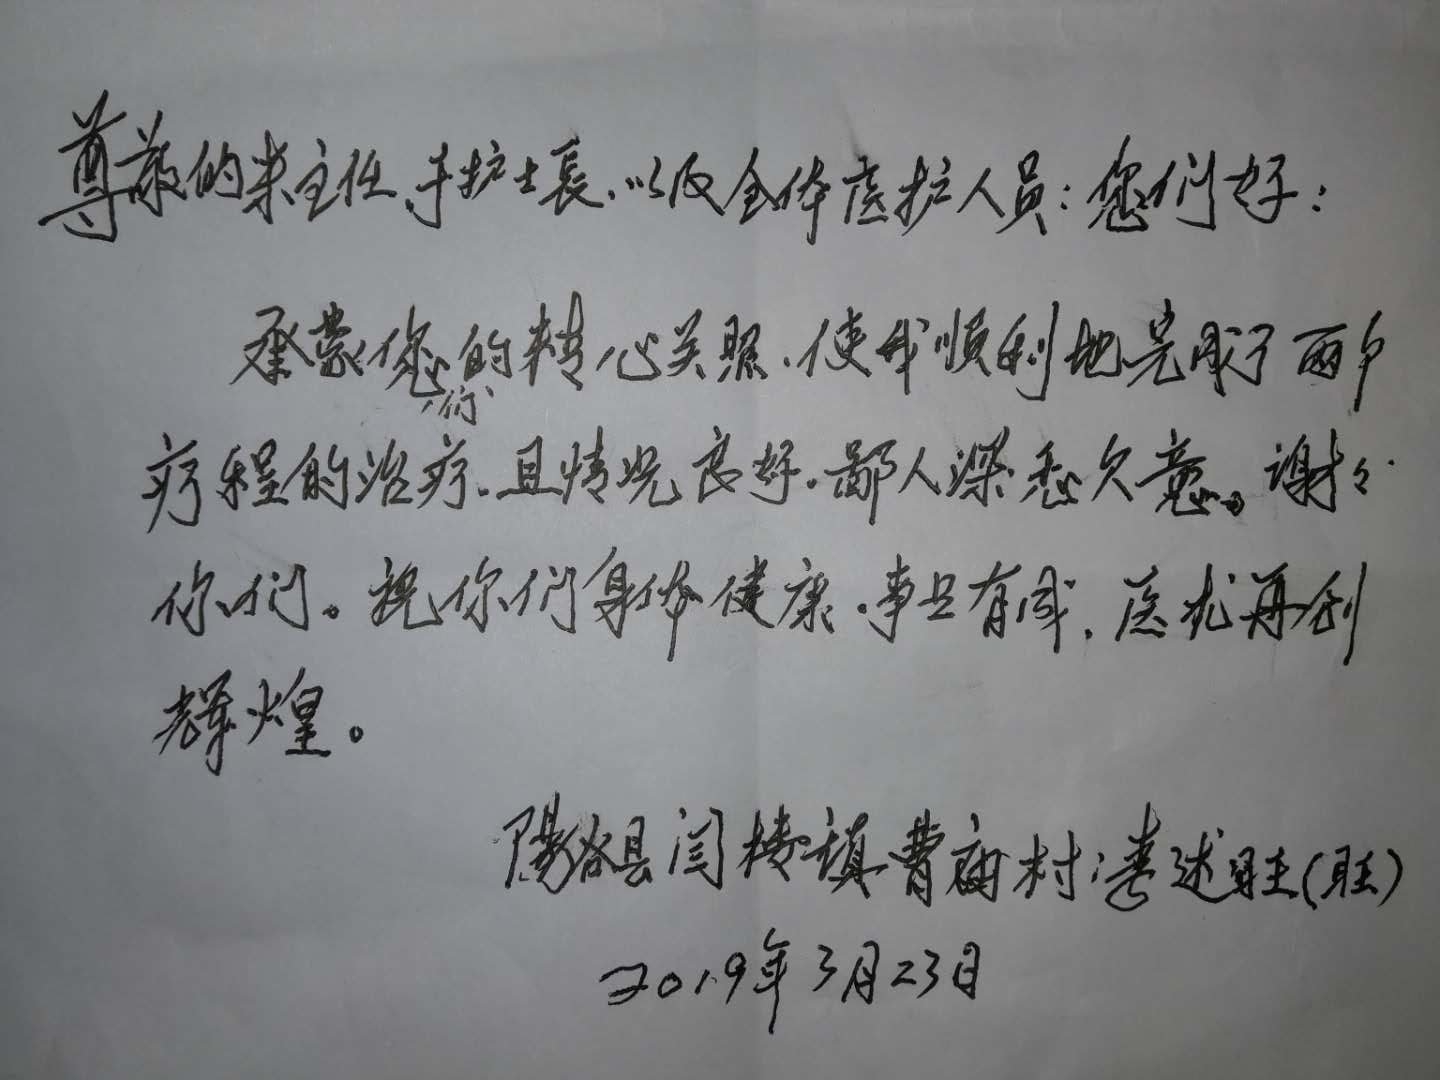 尊敬的宋主任、于护士長、以及全体医护人员：您们好：
承蒙您们的精心关照、使我順利地完成了两个
疗程的治疗、且情况良好、鄙人深悉欠意。谢々
你们。祝你们身体健康、事业有成、医术再创
辉煌。
县闫楼镇曹庙村：述旺（旺）
2019年3月23日